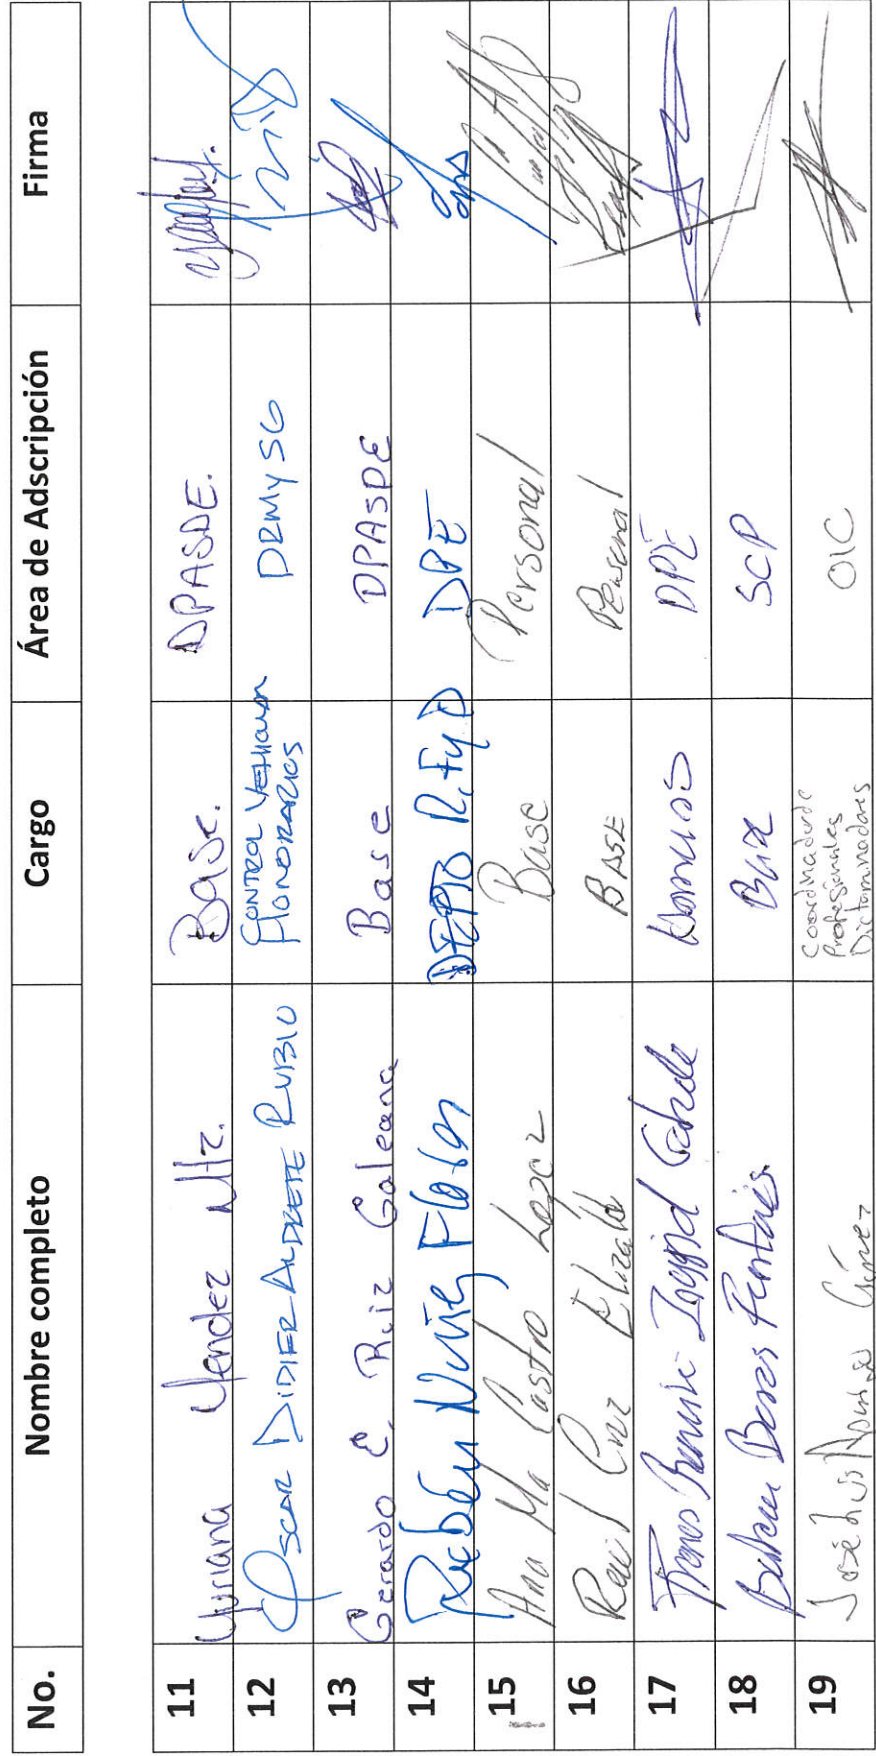 No. Nombre completo Cargo Área de Adscripción Firma
11 Yuriana Mendez Mtz. Base. DPASDE.
12 OSCAR DIDIER ALDRETE RUBIO CONTROL VEHICULAR HONORARIOS DRMySG
13 Gerardo E. Ruiz Galeana Base DPASDE
14 Rubén Nuñez Flores DEPTO R.F y D DPE
15 Ana Ma Castro Lopez Base Personal
16 Raul Cruz Elizalde BASE Personal
17 Ingrid DPE
18 Base SCP
19 José Luis Gómez Coordinador de Profesionales Dictaminadores OIC